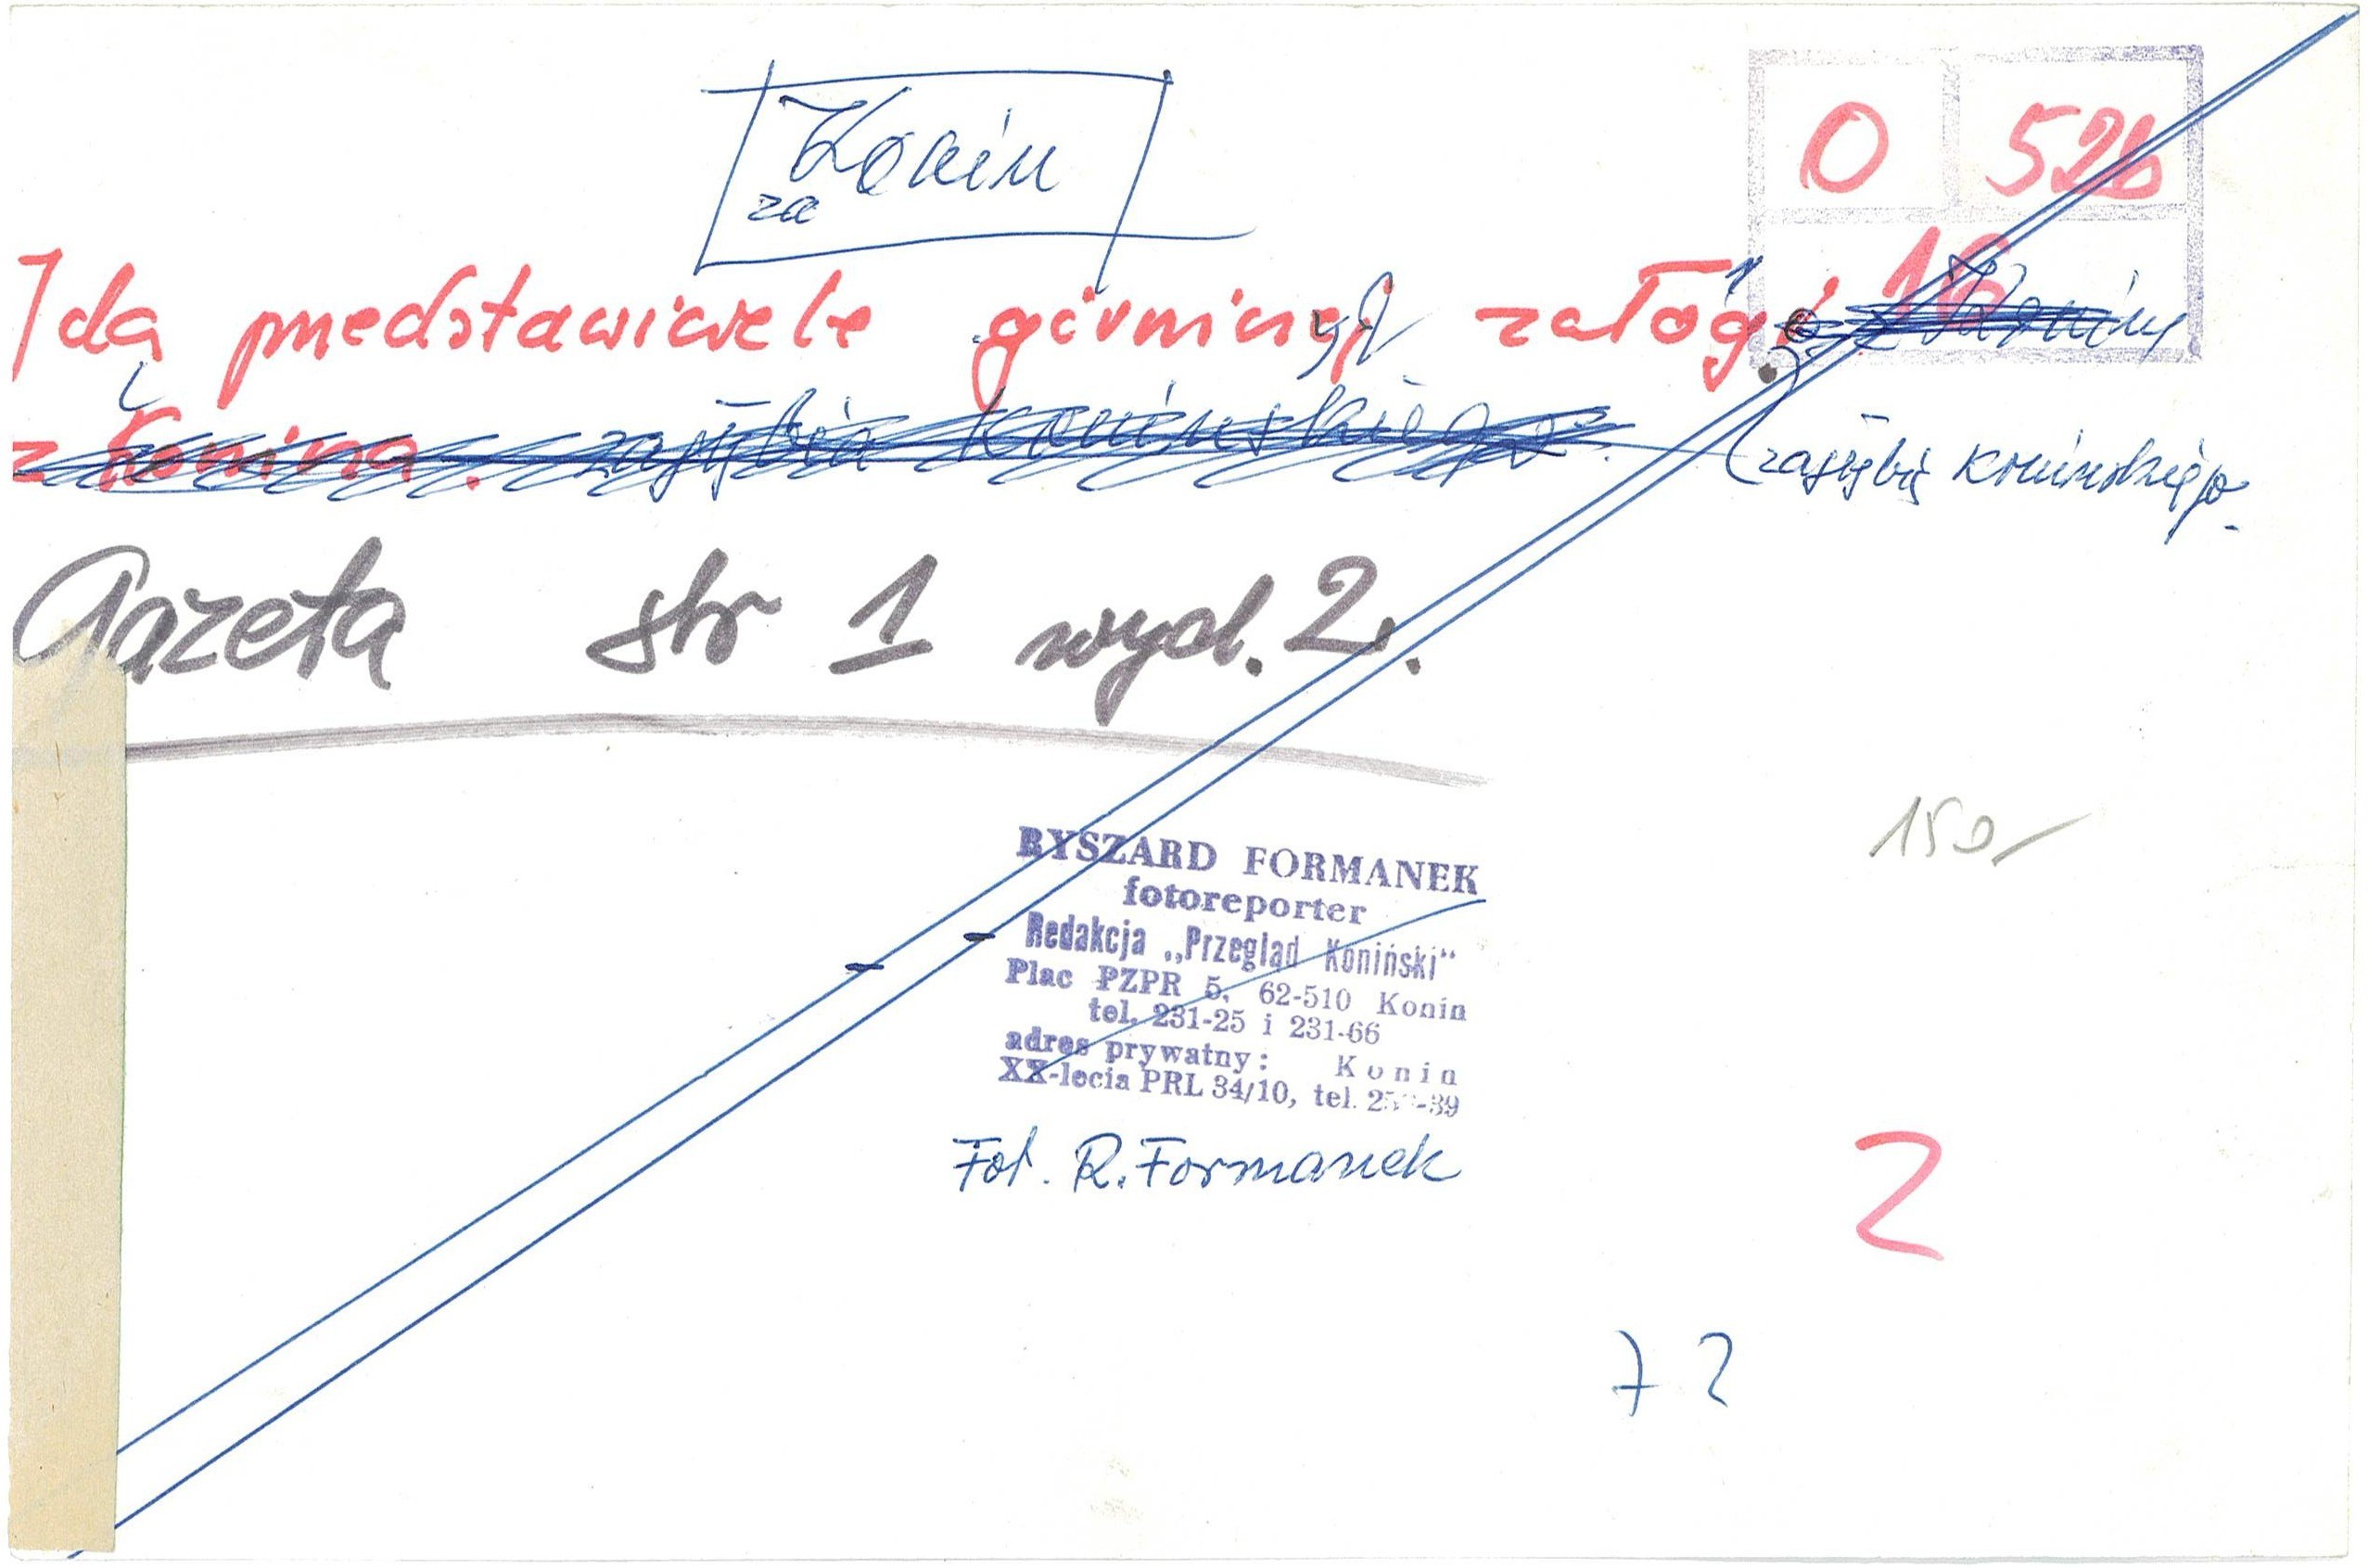 Konin
za
0 52b
16
Idą przedstawiciele górniczych załóg
z Konina. zagłębia konińskiego
zagłębia konińskiego.
Gazeta str 1 wyd. 2.
150-
RYSZARD FORMANEK
fotoreporter
Redakcja „Przegląd Koniński"
Plac PZPR 5, 62-510 Konin
tel. 231-25 i 231-66
adres prywatny: Konin
XX-lecia PRL 34/10, tel.
Fot. R. Formanek
2
72